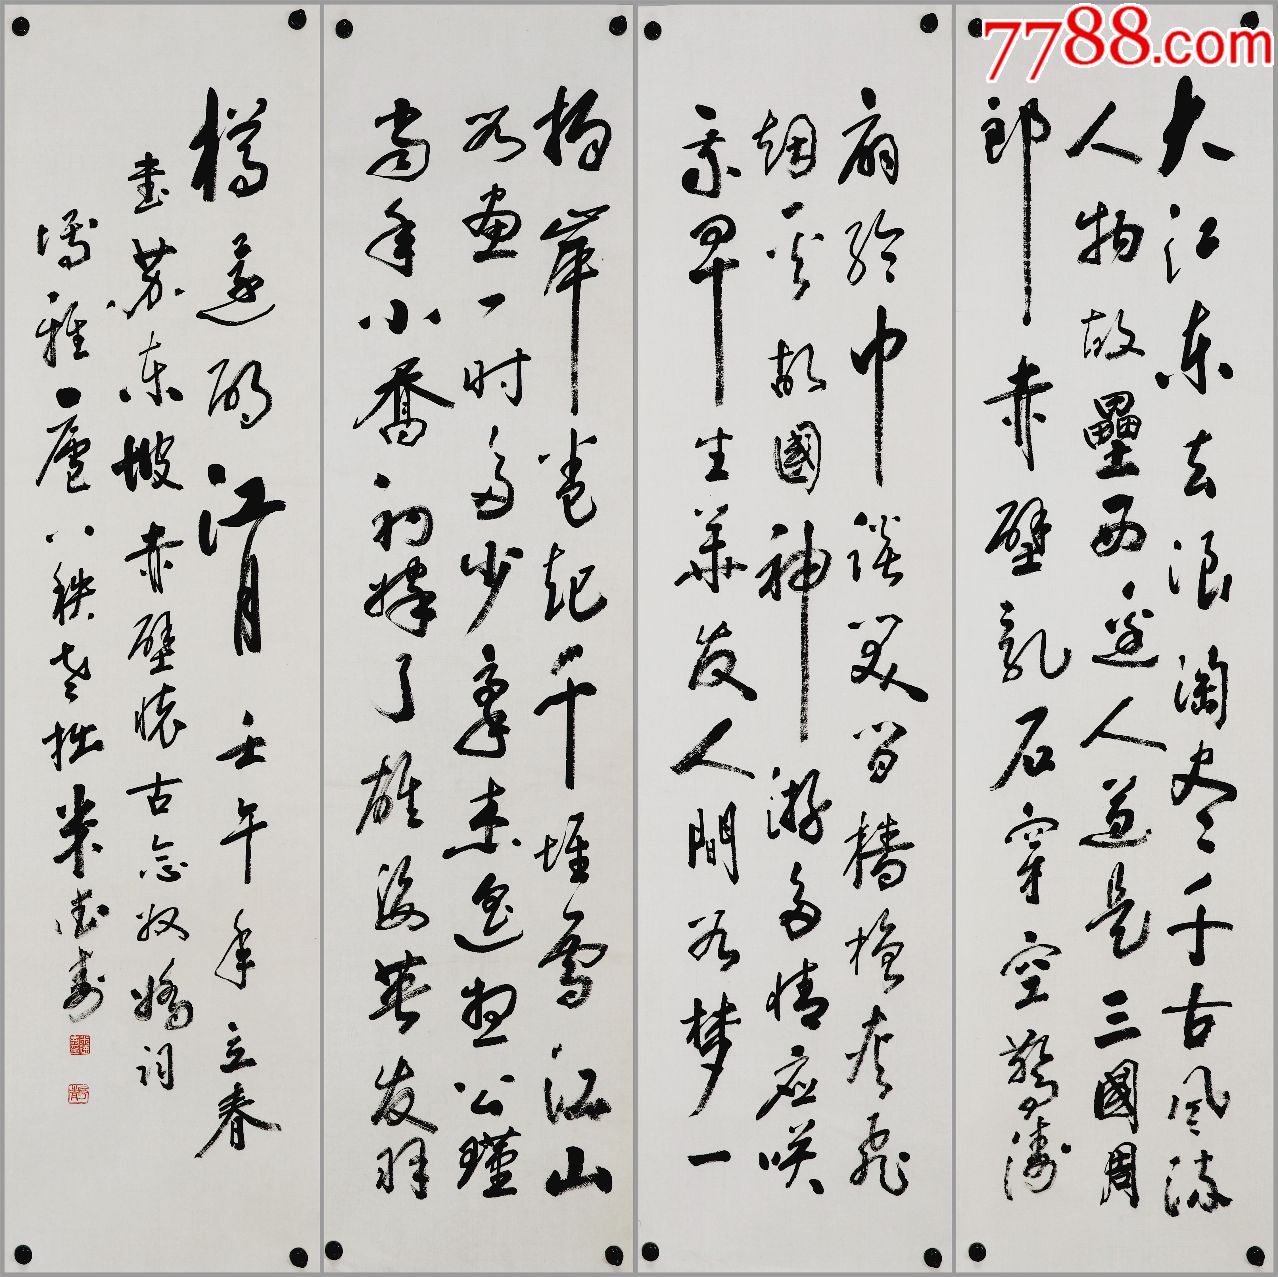 7788.com
大江东去浪淘尽千古风流
人物故壘西边人道是三國周
郎赤壁乱石穿空驚涛
拍岸卷起千堆雪江山
如画一时多少豪杰遥想公瑾
当年小喬初嫁了雄姿英发羽
扇纶巾谈笑间檣櫓灰飞
烟灭故國神游多情应笑
我早生華发人間如梦一
樽還酹江月壬午年立春
书苏东坡赤壁怀古念奴娇词
博雅廬八秩老拙